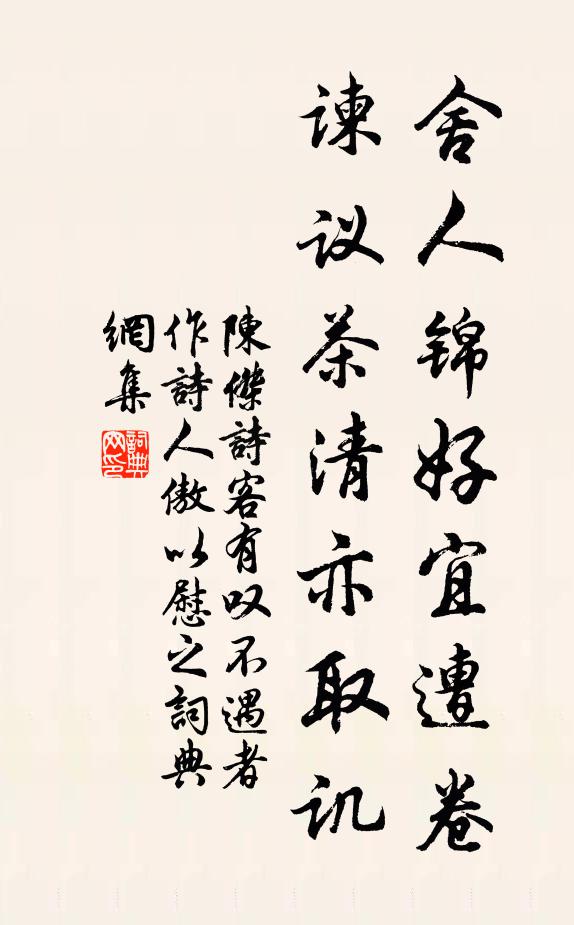 舍人锦好宜遭卷
谏议茶清亦取讥
陳傑詩客有叹不遇者
作詩人傲以慰之詞典
網集
詞典網印